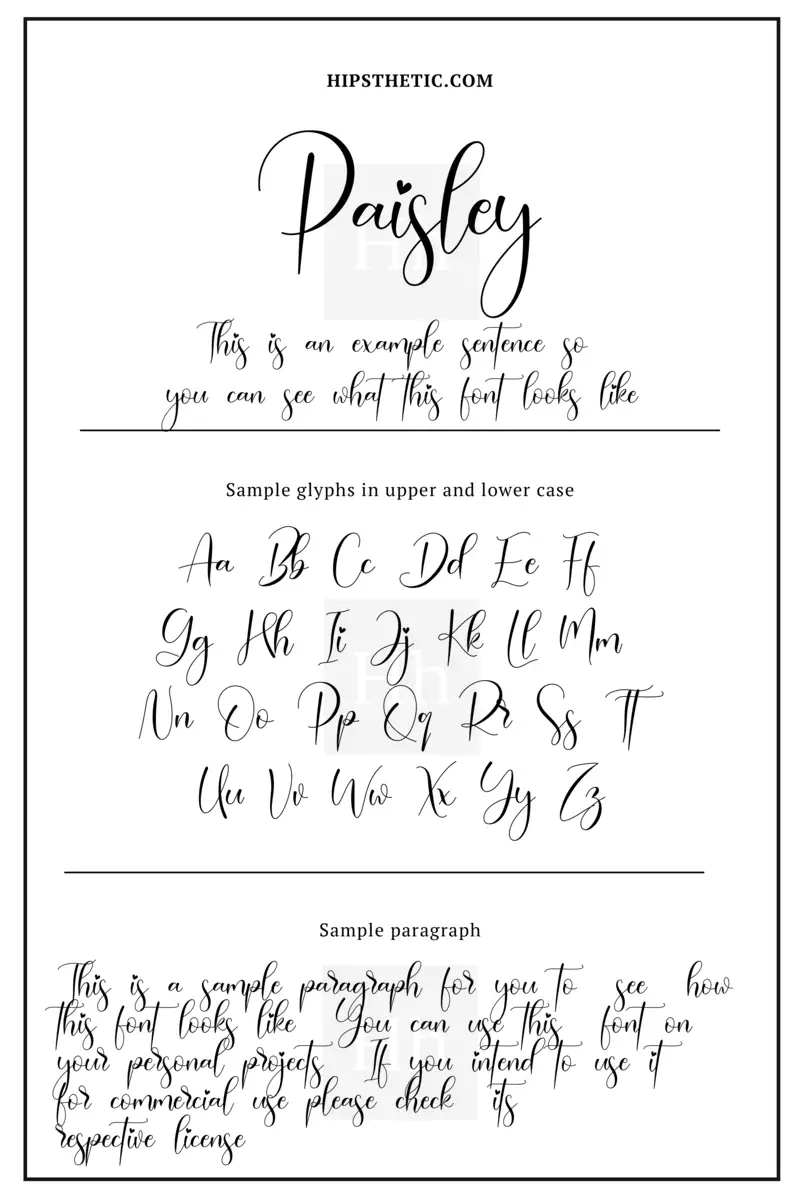 HIPSTHETIC.COM
Paisley
This is an example sentence so
you can see what this font looks like
Sample glyphs in upper and lower case
Aa Bb Cc Dd Ee Ff
Gg Hh Ii Jj Kk Ll Mm
Nn Oo Pp Qq Rr Ss Tt
Uu Vv Ww Xx Yy Zz
Sample paragraph
This is a sample paragraph for you to see how
this font looks like You can use this font on
your personal projects If you intend to use it
for commercial use please check its
respective license
Hh
Hh
Hh